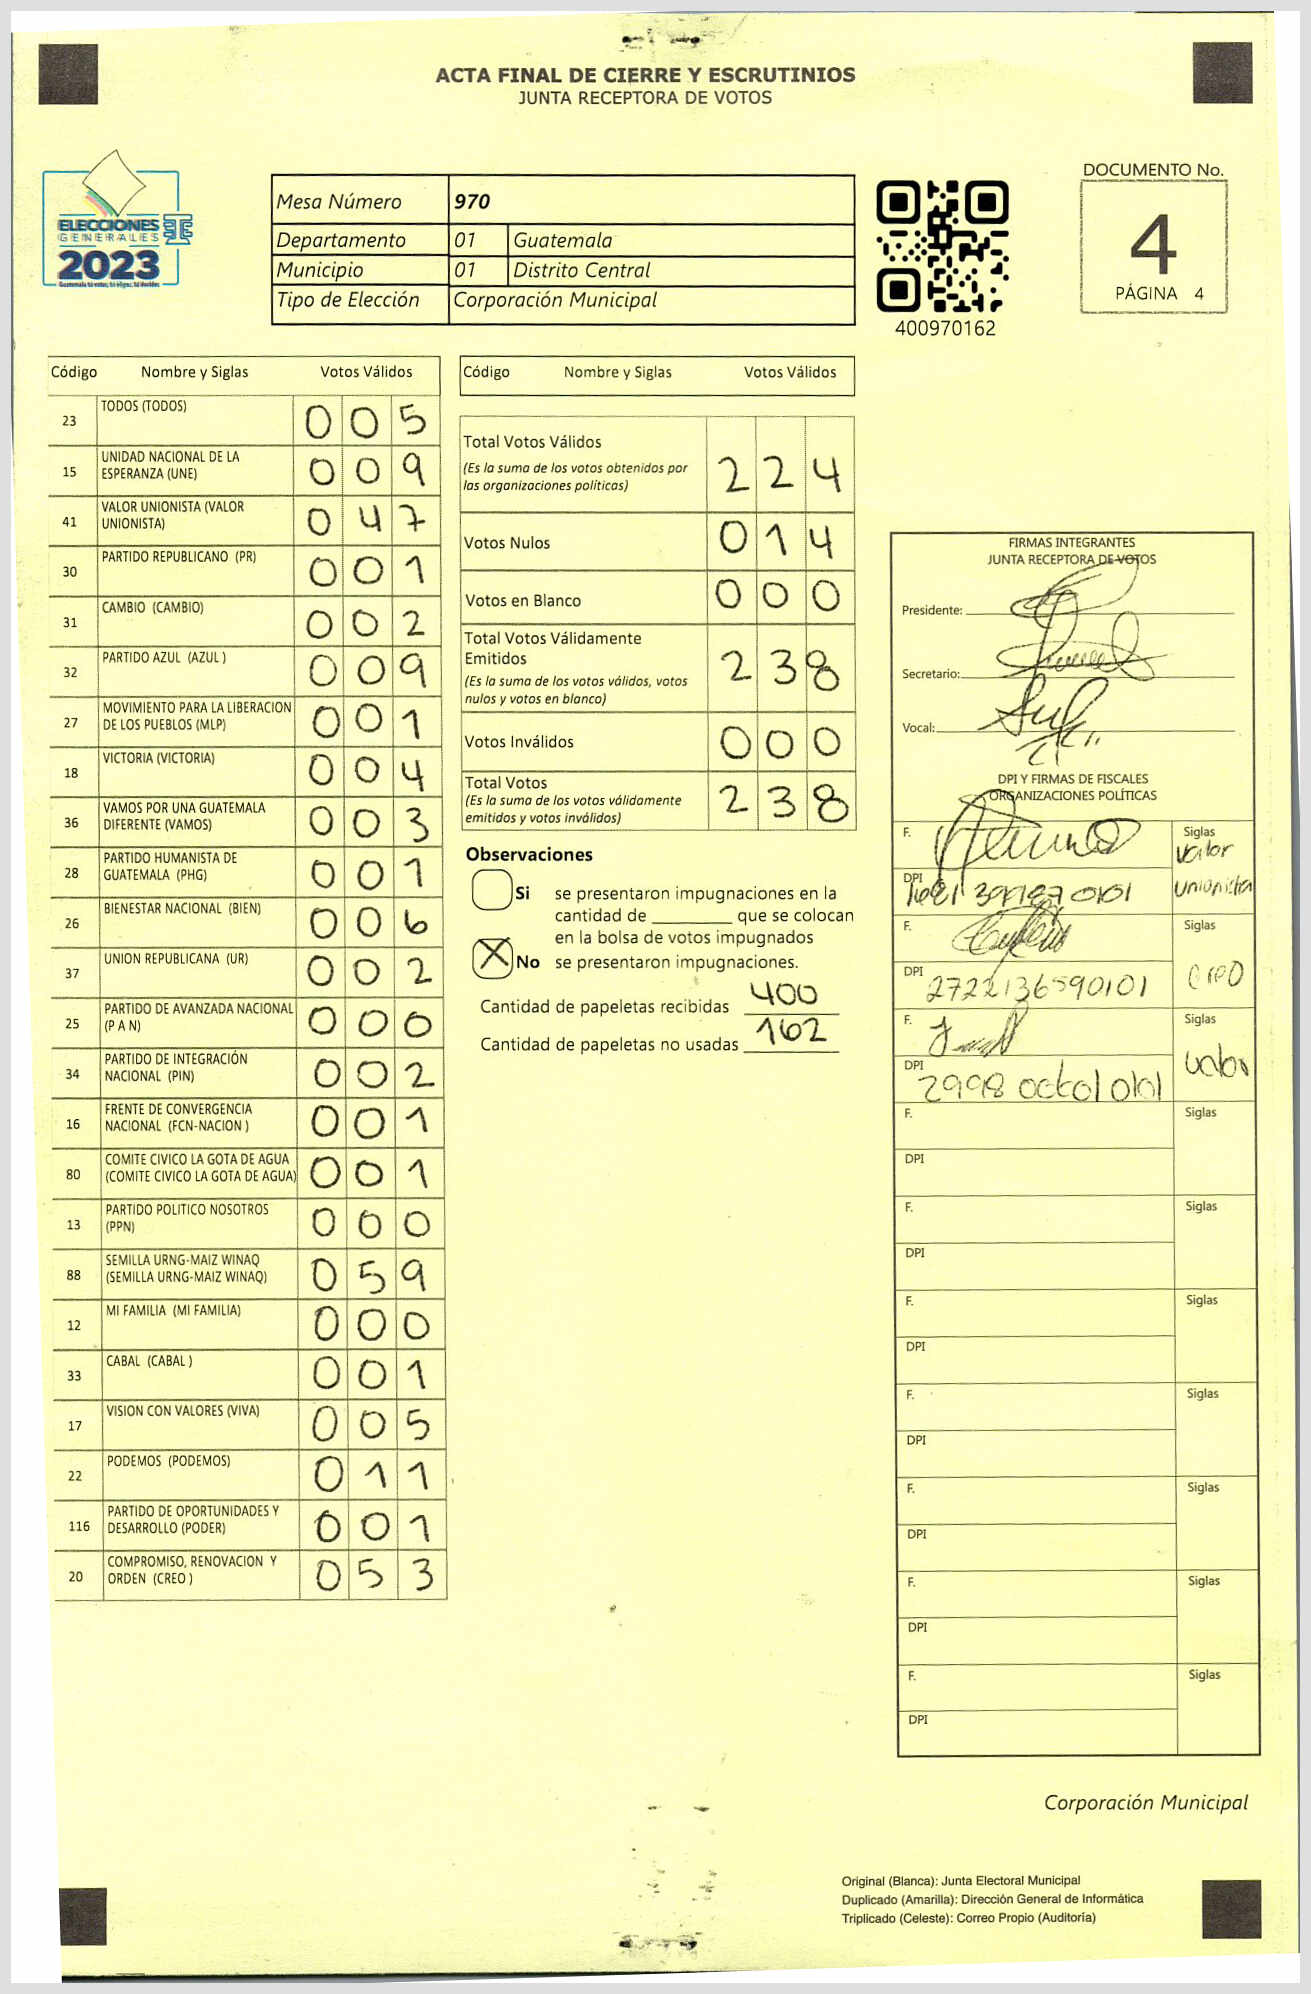 ACTA FINAL DE CIERRE Y ESCRUTINIOS
JUNTA RECEPTORA DE VOTOS
ELECCIONES
GENERALES
2023
Guatemala tú votas, tú eliges, tú decides
Mesa Número 970
Departamento 01 Guatemala
Municipio 01 Distrito Central
Tipo de Elección Corporación Municipal
400970162
DOCUMENTO No.
4
PÁGINA 4
Código Nombre y Siglas Votos Válidos
23 TODOS (TODOS) 0 0 5
15 UNIDAD NACIONAL DE LA
ESPERANZA (UNE) 0 0 9
41 VALOR UNIONISTA (VALOR
UNIONISTA) 0 4 7
30 PARTIDO REPUBLICANO (PR) 0 0 1
31 CAMBIO (CAMBIO) 0 0 2
32 PARTIDO AZUL (AZUL ) 0 0 9
27 MOVIMIENTO PARA LA LIBERACION
DE LOS PUEBLOS (MLP) 0 0 1
18 VICTORIA (VICTORIA) 0 0 4
36 VAMOS POR UNA GUATEMALA
DIFERENTE (VAMOS) 0 0 3
28 PARTIDO HUMANISTA DE
GUATEMALA (PHG) 0 0 1
26 BIENESTAR NACIONAL (BIEN) 0 0 6
37 UNION REPUBLICANA (UR) 0 0 2
25 PARTIDO DE AVANZADA NACIONAL
(P A N) 0 0 0
34 PARTIDO DE INTEGRACIÓN
NACIONAL (PIN) 0 0 2
16 FRENTE DE CONVERGENCIA
NACIONAL (FCN-NACION ) 0 0 1
80 COMITE CIVICO LA GOTA DE AGUA
(COMITE CIVICO LA GOTA DE AGUA) 0 0 1
13 PARTIDO POLITICO NOSOTROS
(PPN) 0 0 0
88 SEMILLA URNG-MAIZ WINAQ
(SEMILLA URNG-MAIZ WINAQ) 0 5 9
12 MI FAMILIA (MI FAMILIA) 0 0 0
33 CABAL (CABAL ) 0 0 1
17 VISION CON VALORES (VIVA) 0 0 5
22 PODEMOS (PODEMOS) 0 1 1
116 PARTIDO DE OPORTUNIDADES Y
DESARROLLO (PODER) 0 0 1
20 COMPROMISO, RENOVACION Y
ORDEN (CREO ) 0 5 3
Código Nombre y Siglas Votos Válidos
Total Votos Válidos
(Es la suma de los votos obtenidos por
las organizaciones políticas) 2 2 4
Votos Nulos 0 1 4
Votos en Blanco 0 0 0
Total Votos Válidamente
Emitidos 2 3 8
(Es la suma de los votos válidos, votos
nulos y votos en blanco)
Votos Inválidos 0 0 0
Total Votos 2 3 8
(Es la suma de los votos válidamente
emitidos y votos inválidos)
Observaciones
Si se presentaron impugnaciones en la
cantidad de ________ que se colocan
en la bolsa de votos impugnados
X No se presentaron impugnaciones.
Cantidad de papeletas recibidas 400
Cantidad de papeletas no usadas 162
FIRMAS INTEGRANTES
JUNTA RECEPTORA DE VOTOS
Presidente:
Secretario:
Vocal:
DPI Y FIRMAS DE FISCALES
ORGANIZACIONES POLÍTICAS
F. Siglas
Valor
DPI Unionista
F. Siglas
DPI 2722136590101 CREO
F. Siglas
DPI Valor
F. Siglas
DPI
F. Siglas
DPI
F. Siglas
DPI
F. Siglas
DPI
F. Siglas
DPI
F. Siglas
DPI
F. Siglas
DPI
Corporación Municipal
Original (Blanca): Junta Electoral Municipal
Duplicado (Amarilla): Dirección General de Informática
Triplicado (Celeste): Correo Propio (Auditoría)